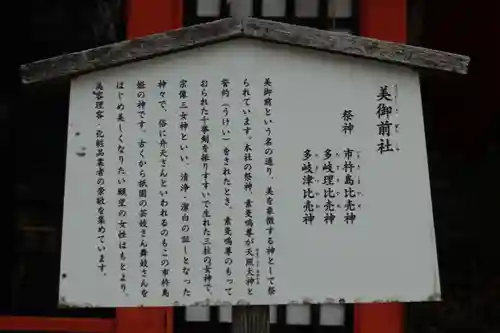 美御前社
祭神 市杵島比売神
多岐理比売神
多岐津比売神
美御前という名の通り、美を象徴する神として祭
られています。本社の祭神、素戔嗚尊が天照大神と
誓約（うけい）をされたとき、素戔嗚尊のもって
おられた十拳剣を振りすすいで生れた三社の女神で、
宗像三女神といい、清浄・潔白の証しとなった
神々で、俗に弁天さんといわれるのもこの市杵島
姫の神です。古くから祇園の芸妓さん舞妓さんを
はじめ美しくなりたい願望の女性はもとより、
美容理容・化粧品業者の崇敬を集めています。